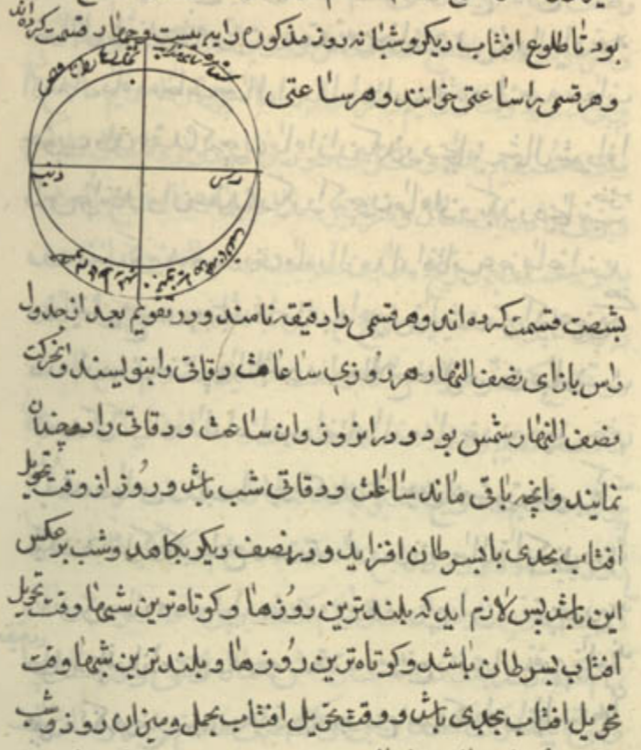 بود تا طلوع افتاب دیکر و شبانه روز مذکور را به بیست و چهار قسمت کرده اند
و هر قسمی را ساعتی خوانند و هر ساعتی
راس
ذنب
بشصت قسمت کرده اند و هر قسمی را دقیقه نامند و در تقویم بعد از جدول
راس بازای نصف النهار هر روزی ساعات دقاق را بنویسند
نصف النهار شمس بود و در انروز وان ساعت و دقاق را دوچندان
نمایند وانچه باقی ماند ساعات و دقاق شب باشد و روز از وقت تحویل
افتاب بجدی تا بسرطان افزاید و در نصف دیکر بکاهد و شب برعکس
این باشد پس لازم اید که بلندترین روزها و کوتاه ترین شبها وقت تحویل
افتاب بسرطان باشد و کوتاه ترین روزها و بلندترین شبها وقت
تحویل افتاب بجدی باشد و وقت تحویل افتاب بحمل و میزان روز و شب